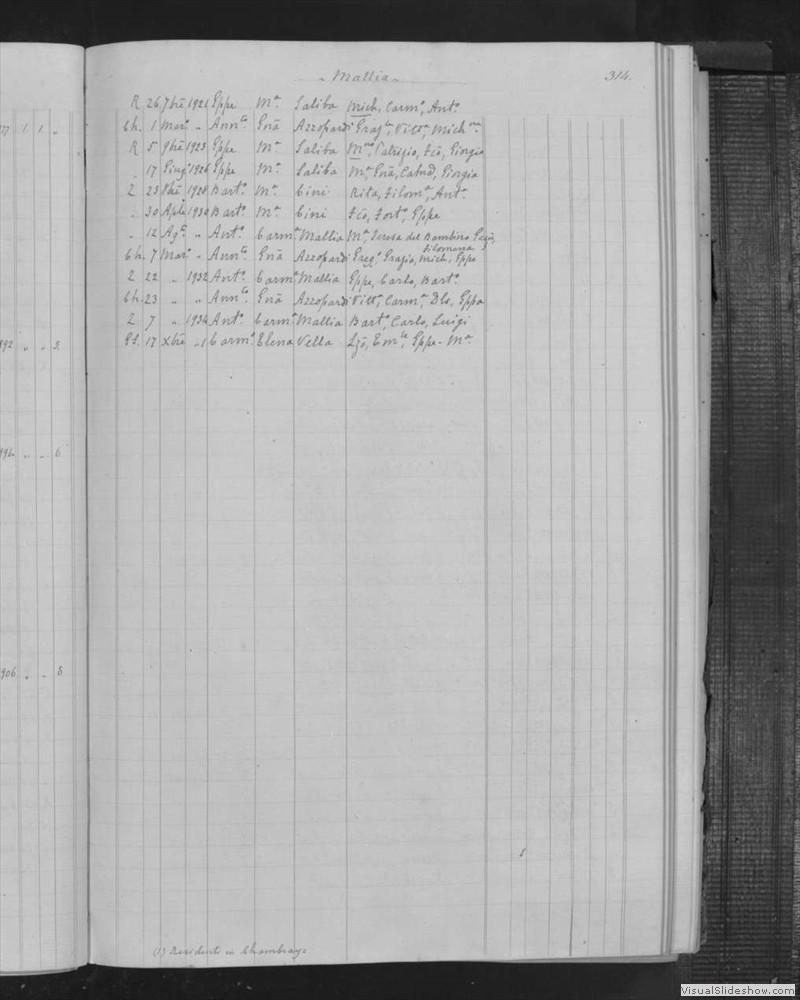 Mattia
314.
R 26 7bre 1921 Gppe Ma Saliba Mich, Carmo, Anto
Ch. 1 Maro „ Annto Gnā Azzopardi Graza, Vitta, Micha
R 5 9bre 1923 Gppe Ma Saliba Ma, Patrizio, Fcō, Giorgia
„ 17 Giugo 1926 Gppe Ma Saliba Ma Gnā, Catnā, Giorgia
Z 23 8bre 1928 Barto Ma Cini Rita, Filoma, Anta
„ 30 Aple 1930 Barto Ma Cini Fcō, Forto, Gppe
„ 12 Ago „ Anto Carma Mattia Ma Teresa del Bambino Gesù, Filomena
Ch. 7 Maro „ Annto Gnā Azzopardi Grego Grazio, Mich, Gppe
Z 22 „ 1932 Anto Carma Mattia Gppe, Carlo, Barto
Ch. 23 „ „ Annto Gnā Azzopardi Vitta, Carma, Gppa
Z 7 „ 1934 Anto Carma Mattia Barto, Carlo, Luigi
17 Xbre „ 1 Carmo Elena Vella Emle, Gppe-Ma
892 „ „ 5.
896 „ „ 6
1906 „ „ 8
(1) Residenti in Chambray
VisualSlideshow.com